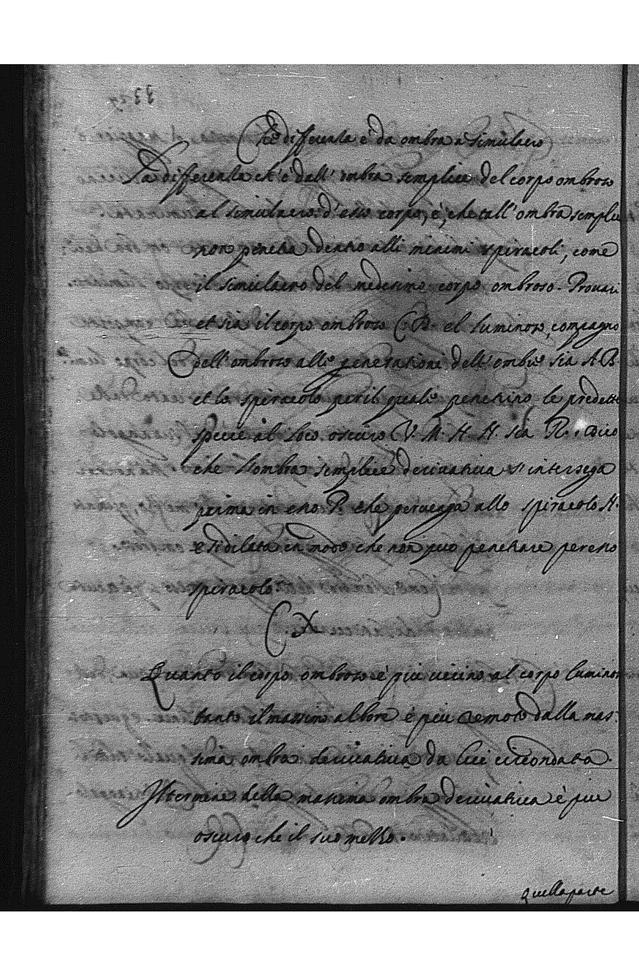 Che differenza è da ombra a simulacro
La differenza ch'è dall'ombra semplice del corpo ombroso
al simulacro d'esso corpo, è, che tall'ombra semplice
non penetra dentro alli minimi spiracoli, come
il simulacro del medesimo corpo ombroso. Provasi
et sia il corpo ombroso C.B. el luminoso, compagno
dell'ombroso alle generationi dell'ombre sia A.B.
et lo spiracolo per il quale penetrino le predette
specie al loco oscuro V. M. H. H. sia R. Dico
che l'ombra semplice derivativa s'intersega
prima in che pervenga allo spiracolo H.
e si dilata in modo che non può penetrare per esso
spiracolo.
C. X
Quanto il corpo ombroso è più vicino al corpo luminoso
tanto il massimo albore è più remoto dalla mas:
sima ombra derivativa da lui circondata.
Il termine della massima ombra derivativa è più
oscuro che il suo mezzo.
quella parte